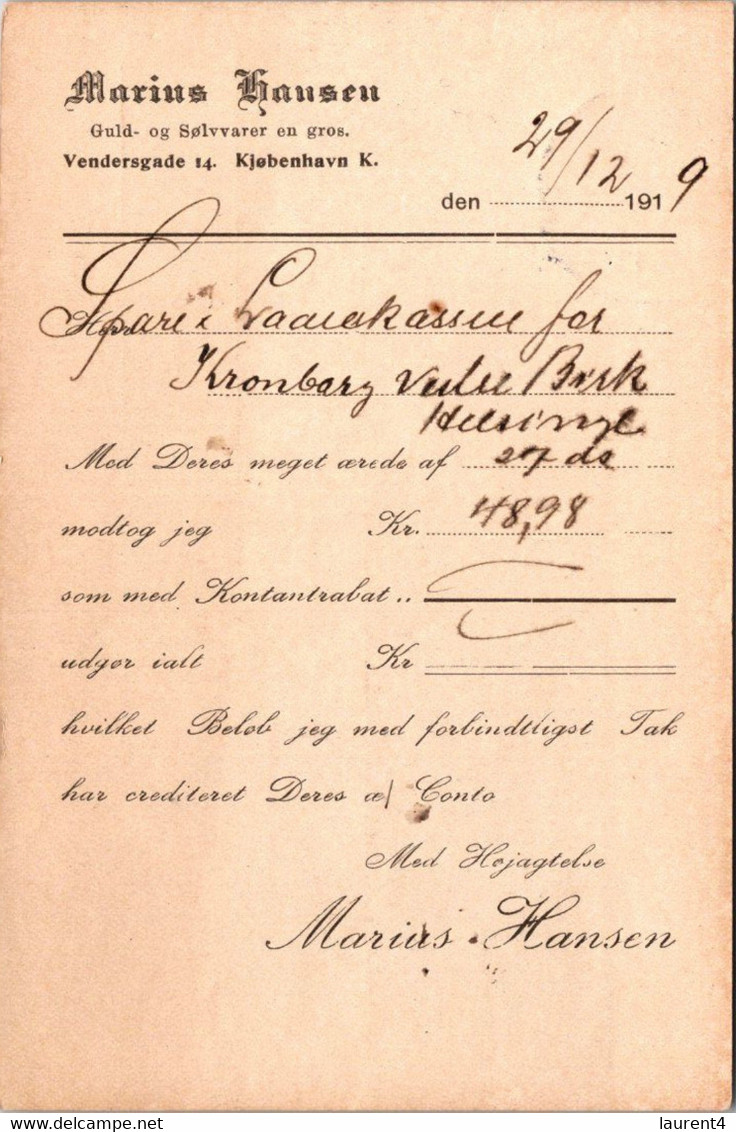 Marius Hansen
Guld- og Sølvvarer en gros.
Vendersgade 14. Kjøbenhavn K.
den 29/12 1919
Spare & Laanekassen for
Kronborg Birk
Med Deres meget ærede af 27 ds
modtog jeg Kr. 48,98
som med Kontantrabat ..
udgør ialt Kr
hvilket Beløb jeg med forbindtligst Tak
har crediteret Deres æ/ Conto
Med Højagtelse
Marius Hansen
laurent4